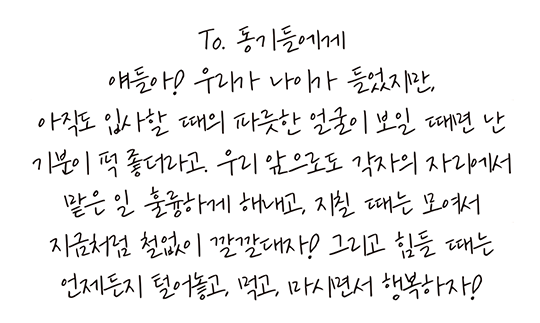 To. 동기들에게
얘들아! 우리가 나이가 들었지만,
아직도 입사할 때의 파릇한 얼굴이 보일 때면 난
기분이 퍽 좋더라고. 우리 앞으로도 각자의 자리에서
맡은 일 훌륭하게 해내고, 지칠 때는 모여서
지금처럼 철없이 깔깔대자! 그리고 힘들 때는
언제든지 털어놓고, 먹고, 마시면서 행복하자!